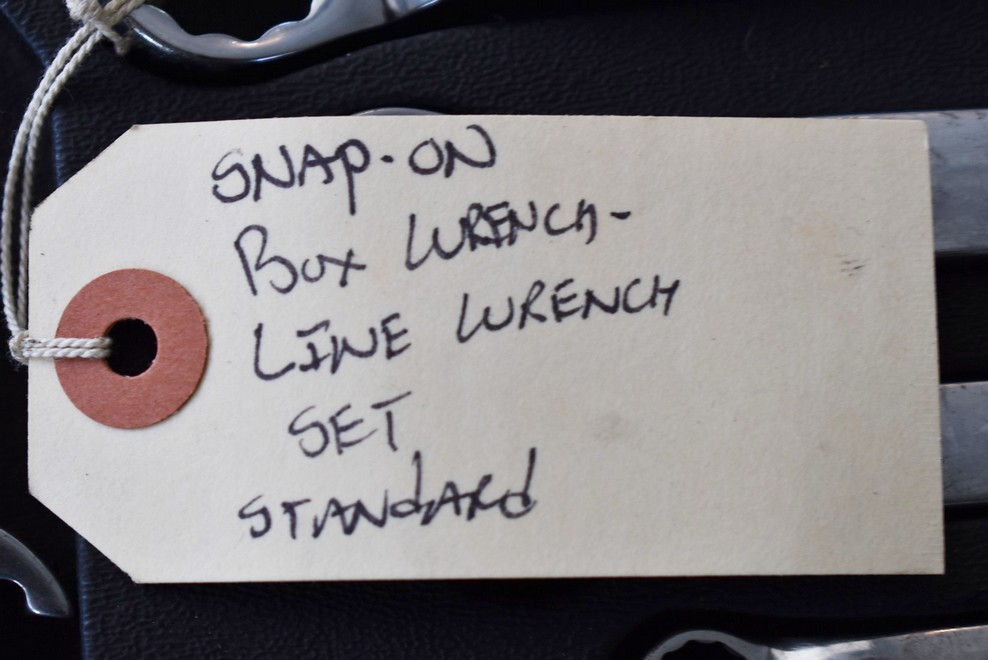 SNAP-ON
BOX WRENCH-
LINE WRENCH
SET
STANdARd